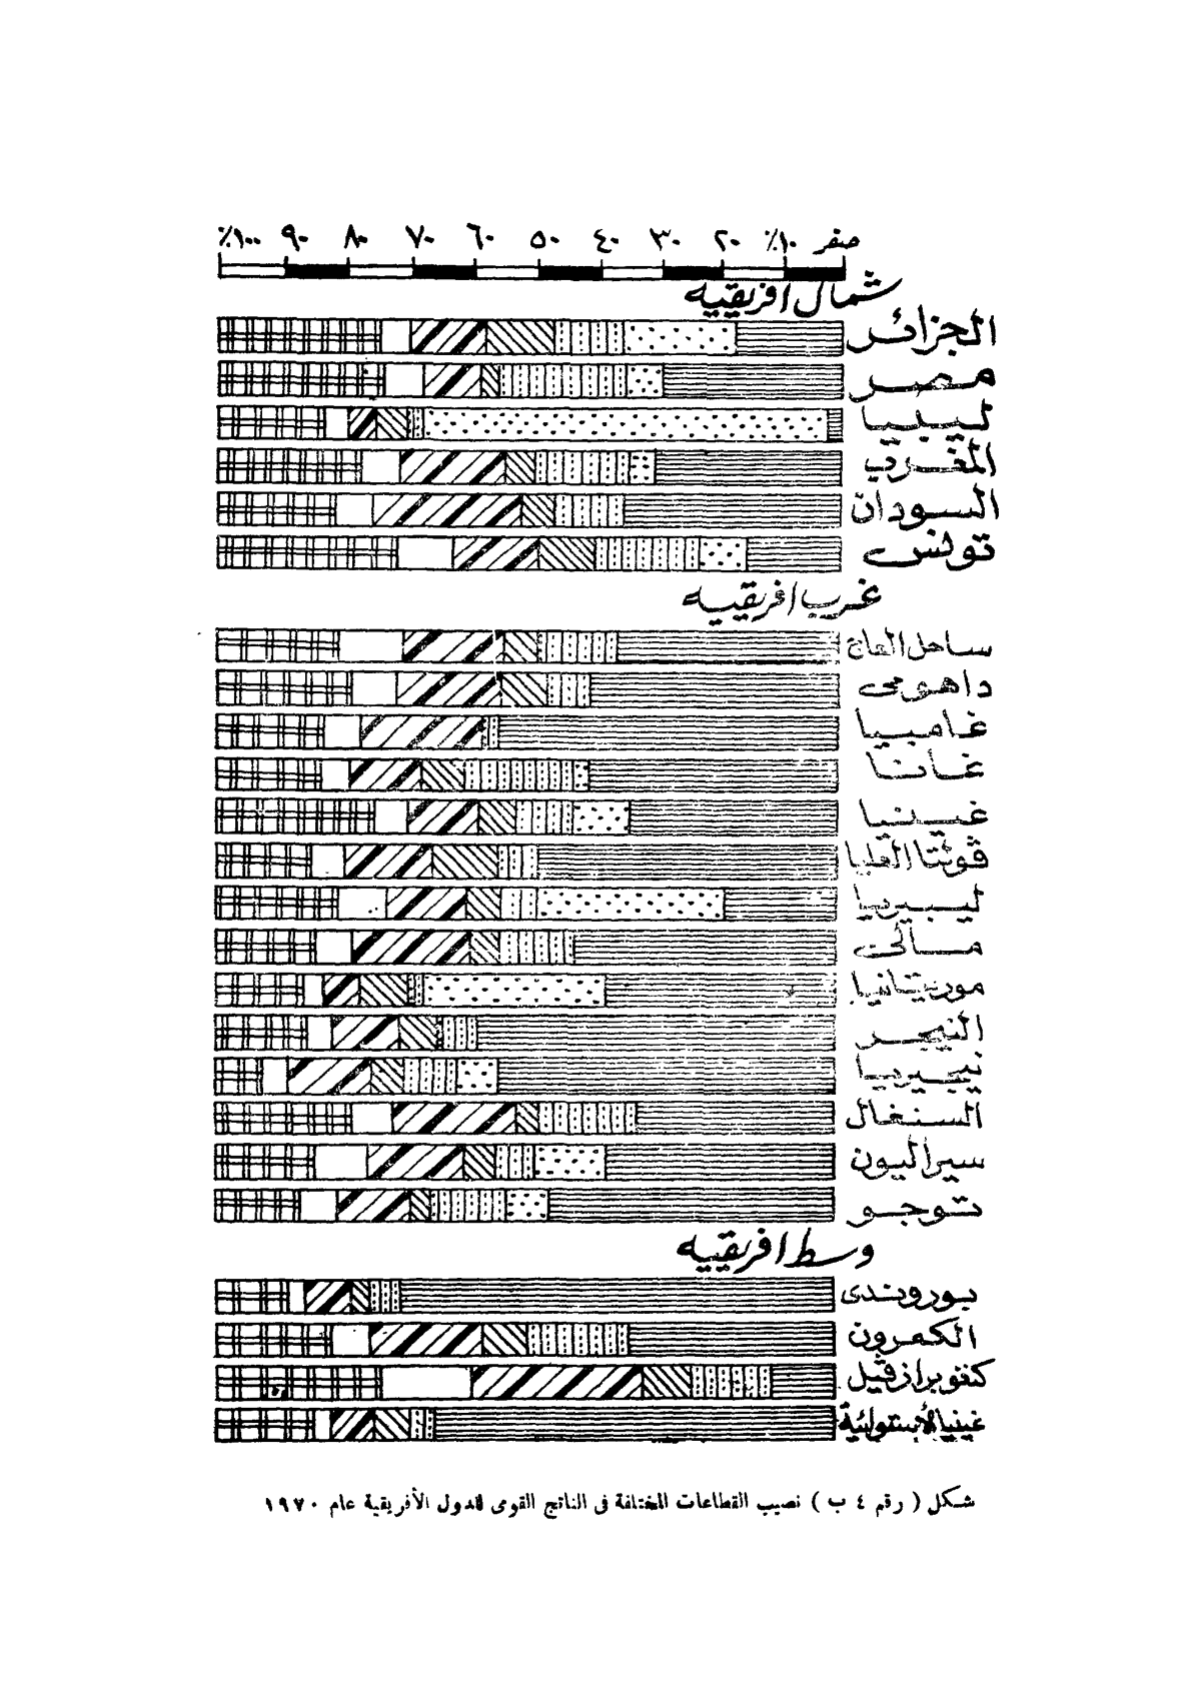 صفر ١٠٪ ٢٠ ٣٠ ٤٠ ٥٠ ٦٠ ٧٠ ٨٠ ٩٠ ١٠٠٪
شمال افريقيه
الجزائر
مصر
ليبيا
المغرب
السودان
تونس
غرب افريقيه
ساحل العاج
داهومى
غامبيا
غانا
غينيا
ڤولتا العليا
ليبيريا
مالى
موريتانيا
النيجر
نيجيريا
السنغال
سيراليون
توجو
وسط افريقيه
بوروندى
الكمرون
كنغو برازڤيل
غينيا الأستوائية
شكل ( رقم ٤ ب ) نصيب القطاعات المختلفة فى الناتج القومى للدول الأفريقية عام ١٩٧٠